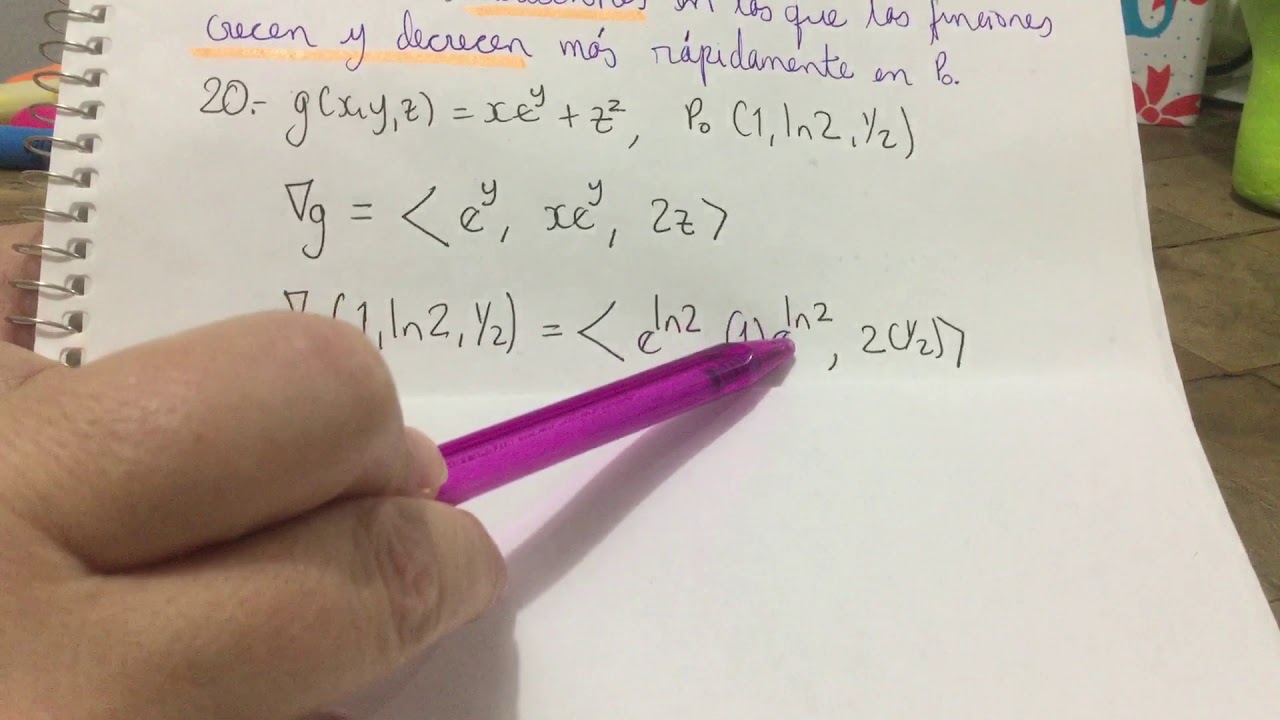 en los que las funciones
crecen y decrecen más rápidamente en P₀.
20.- g(x,y,z) = xe^y + z², P₀ (1, ln2, 1/2)
∇g = < e^y, xe^y, 2z >
(1, ln2, 1/2) = < e^ln2 (1) e^ln2, 2(1/2) >